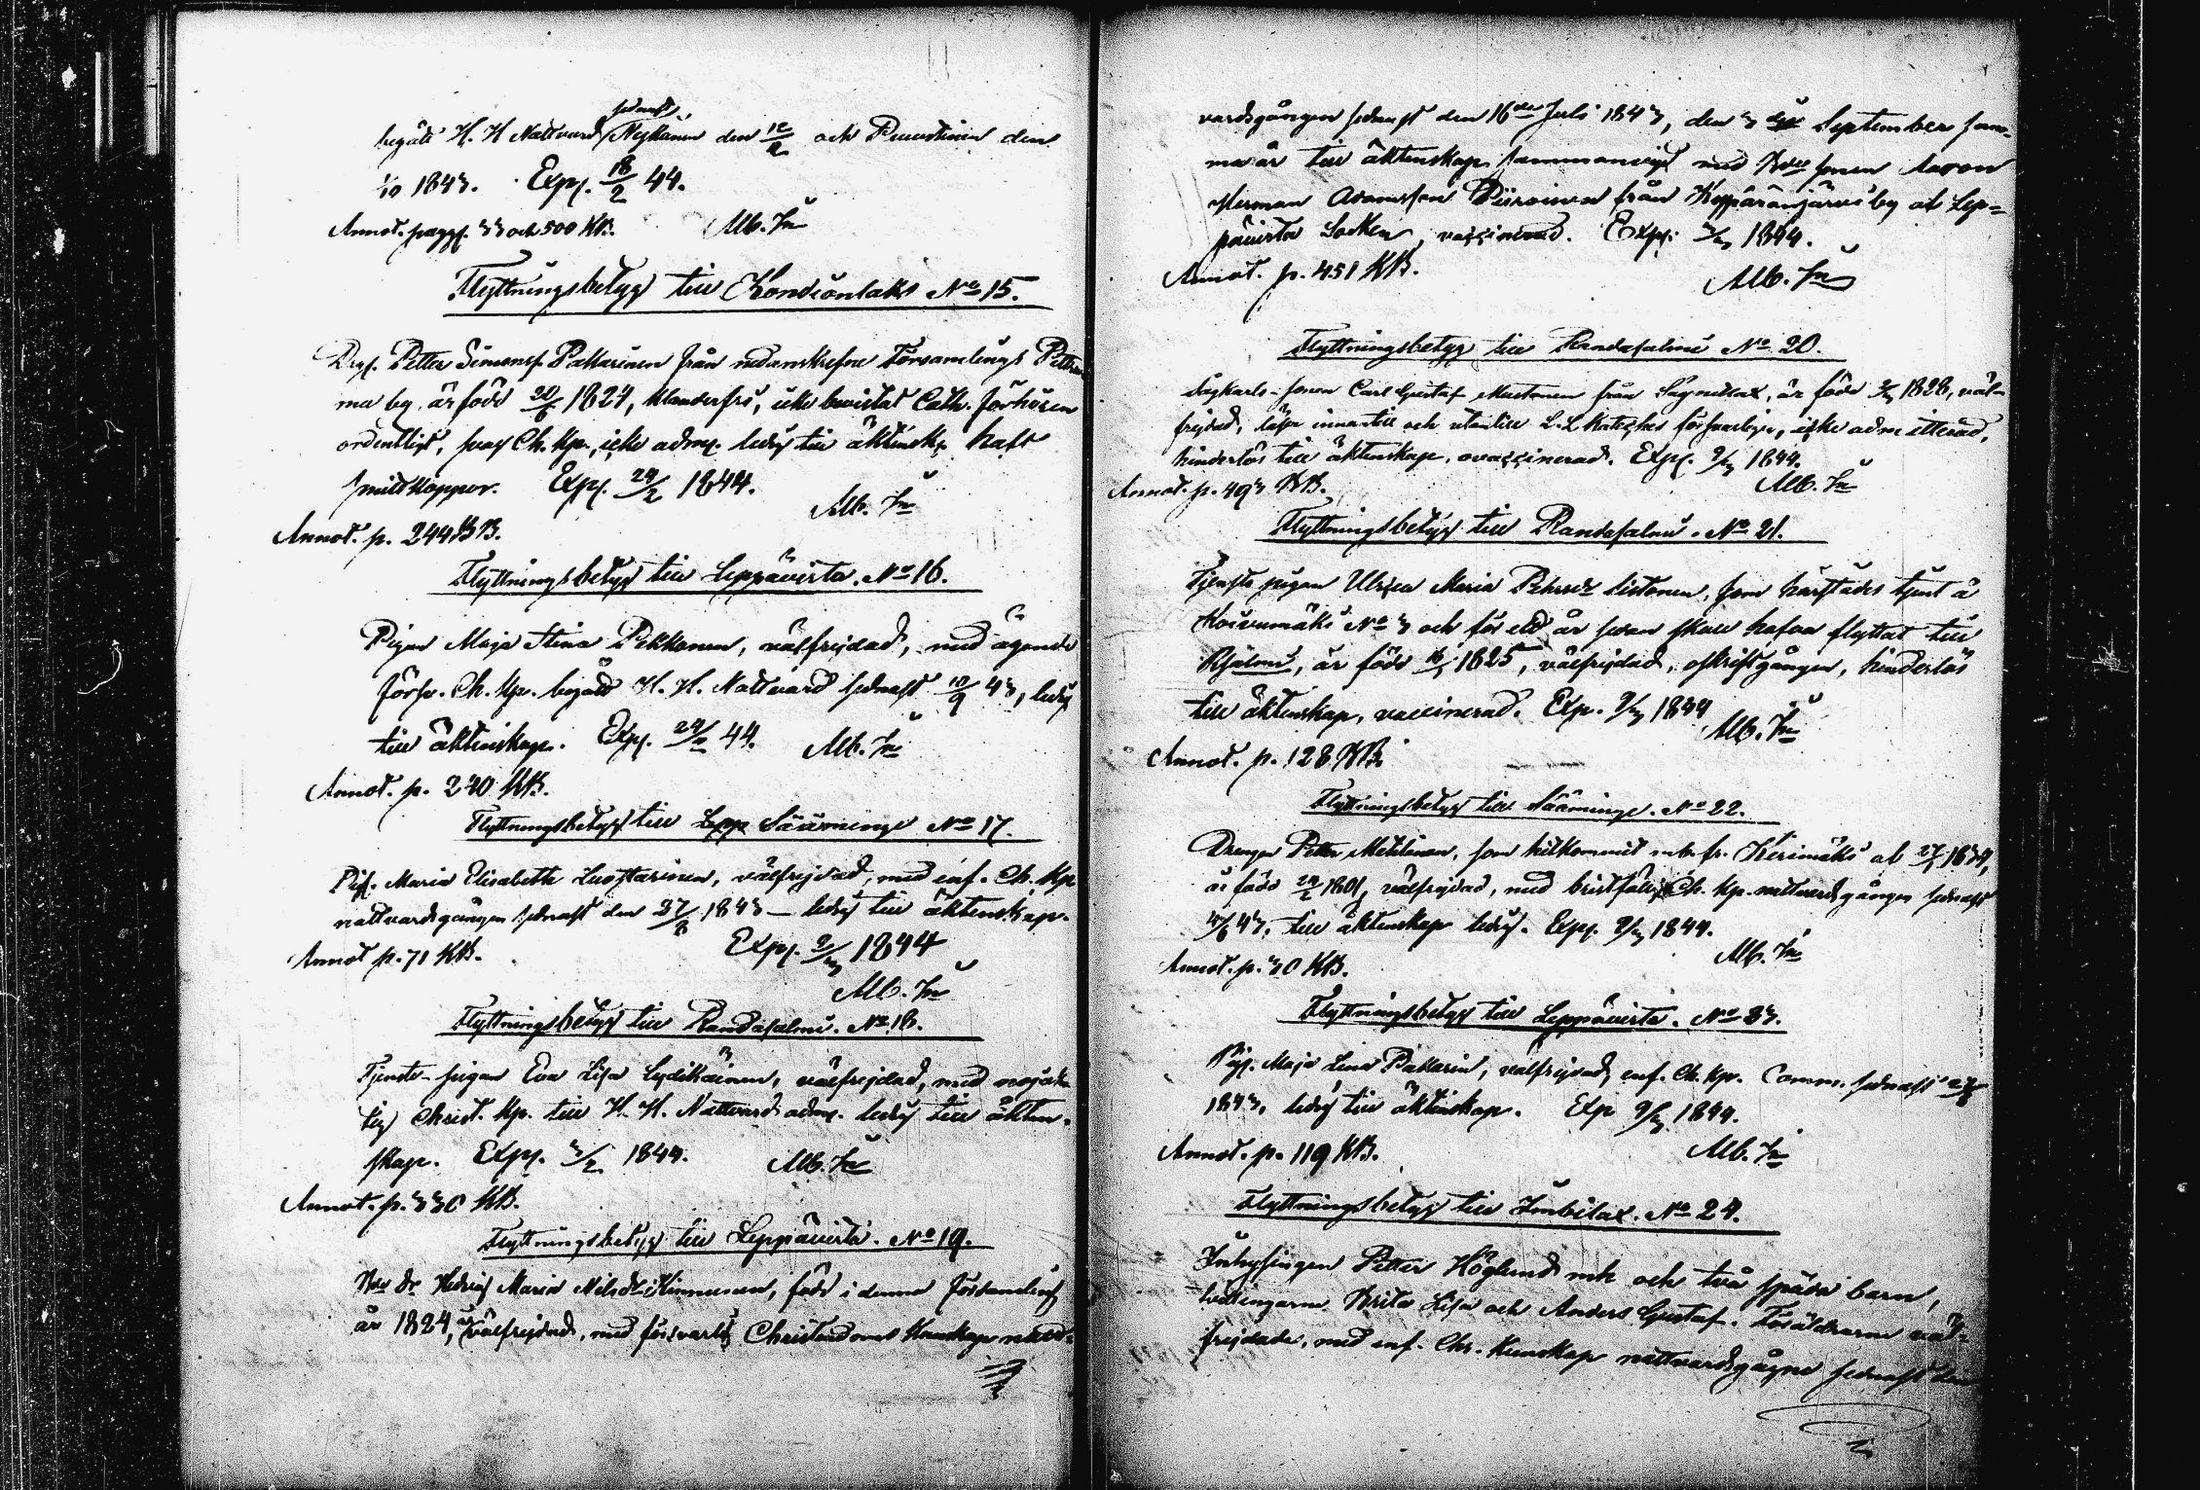 sednast
begått H. H. Nattvard Nykänen den 12/2 och Puustinen den
1/10 1843. Exp. 18/2 44.
Annot. pagg. 33 och 500 KB. Alb. Jn
Flyttningsbetyg till Kondiontaks No 15.
Drg. Petter Simonss. Pakarinen från nedanskrefne Församlings Petter-
ma by, är född 20/5 1824, klanderfri, icke bevistat Cath. förhören
ordentligt, svag Ch. kp., icke adm. ledig till äktensk. haft
smittkoppor. Exp. 24/2 1844. Alb. Jn
Annot. p. 244 KB.
Flyttningsbetyg till Leppävirta. No 16.
Pigan Maja Stina Pekkonen, välfrejdad, med ägande
försv. Ch. kp. begått H. H. Nattvard sednast 10/9 43, ledig
till äktenskap. Exp. 24/2 44. Alb. Jn
Annot. p. 240 KB.
Flyttningsbetyg till Lepp Sääminge No 17.
Pig. Maria Elisabeth Luostarinen, välfrejdad, med enf. Ch. kp
nattvardsgången sednast den 27/8 1843 – ledig till äktenskap.
Annot p. 71 KB. Exp. 2/3 1844
Alb. Jn
Flyttningsbetyg till Randasalmi. No 18.
Tjenste-pigan Eva Lisa Lydikäinen, välfrejdad, med nojakt-
lig Christ. kp. till H. H. Nattvard adm. ledig till äkten-
skap. Exp. 3/2 1844. Alb. Jn
Annot. p. 330 KB.
Flyttningsbetyg till Leppävirta. No 19.
Bde dr Hedvig Maria Nilsdr Kinnunen, född i denna Församling
år 1824, är välfrejdad, med försvarlig Christendoms Kunskap natt-
vardsgången sednast den 16de Juli 1843, den 3dje September sam-
ma år till äktenskap sammanvigd med Bde sonen Aaron
Herman Adamsson Piiroinen från Koppäränjärvi by af Lep-
pävirta Socken, vaccinerad. Exp. 2/3 1844.
Annot. p. 451 KB. Alb. Jn
Flyttningsbetyg till Randasalmi No 20.
Sågkarls-sonen Carl Gustaf Mustonen från Sågnitlax, är född 1828, väl-
frejdad, läser innantill och utantill L. L. Kateches försvarligen, icke admitterad,
hinderlös till äktenskap, ovaccinerad. Exp. 9/3 1844.
Annot. p. 493 KB. Alb. Jn
Flyttningsbetyg till Randasalmi. No 21.
Tjenste pigan Ulrica Maria Pehrsdr Lietonen, som härstädes tjent å
Koivumäki No 3 och för ett år sedan skall hafva flyttat till
Rsalmi, är född 1825, välfrejdad, oskriftgången, hinderlös
till äktenskap, vaccinerad. Exp. 9/3 1844
Alb. Jn
Annot. p. 128 KB.
Flyttningsbetyg till Sääminge. No 22.
Drengen Petter Makkonen, som hitkommit m. b. fr. Kerimäki af 1839,
är född 24/2 1801, välfrejdad, med bristfällig Ch. kp. nattvardsgången sednast
4/6 43, till äktenskap ledig. Exp. 9/3 1844.
Alb. Jn
Annot. p. 30 KB.
Flyttningsbetyg till Leppävirta. No 23.
Pig. Maja Lena Pakarin, välfrejdad, enf. Ch. kp. Comm. sednast
1843, ledig till äktenskap. Exp 9/3 1844.
Annot. p. 119 KB. Alb. Jn
Flyttningsbetyg till Imbilax. No 24.
Inhysingen Petter Höglund mh och två späda barn,
tvillingarne Brita Lisa och Anders Gustaf. Föräldrarne väl-
frejdade, med enf. Chr. Kunskap nattvardsgågne sednast den